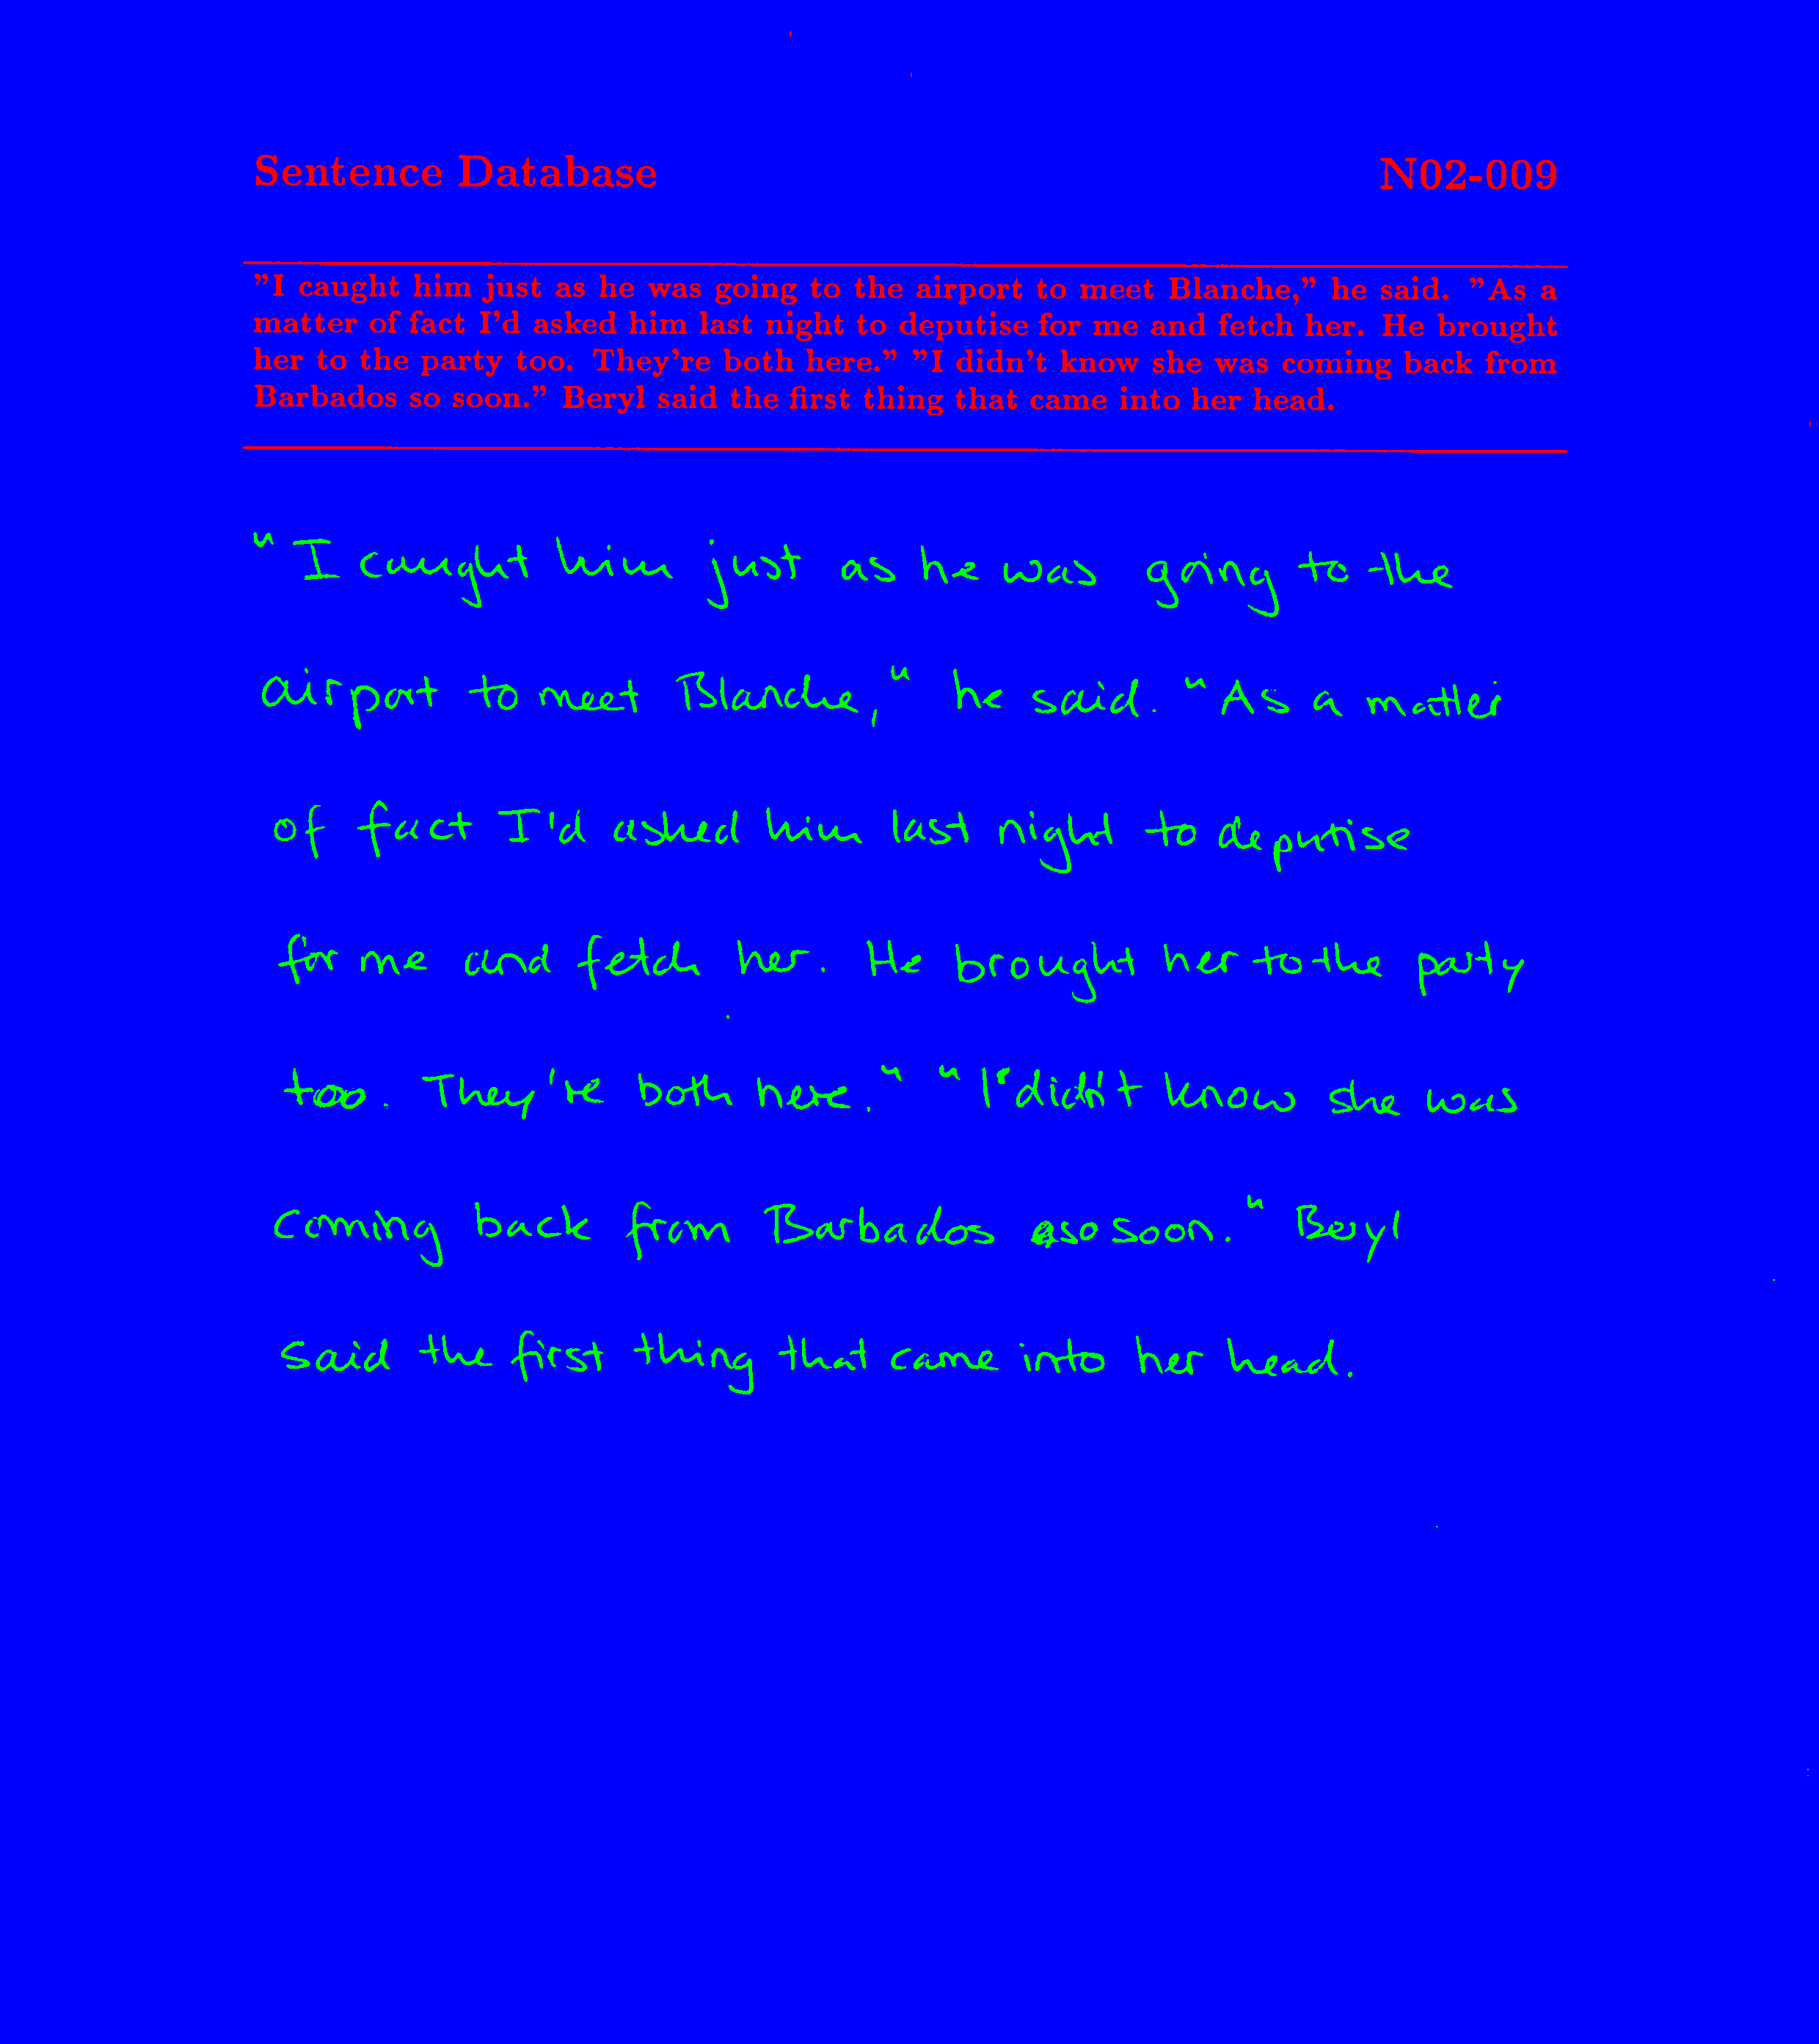 Sentence Database N02-009
"I caught him just as he was going to the airport to meet Blanche," he said. "As a
matter of fact I'd asked him last night to deputise for me and fetch her. He brought
her to the party too. They're both here." "I didn't know she was coming back from
Barbados so soon." Beryl said the first thing that came into her head.
"I caught him just as he was going to the
airport to meet Blanche," he said. "As a matter
of fact I'd asked him last night to deputise
for me and fetch her. He brought her to the party
too. They're both here." "I didn't know she was
coming back from Barbados so soon." Beryl
said the first thing that came into her head.